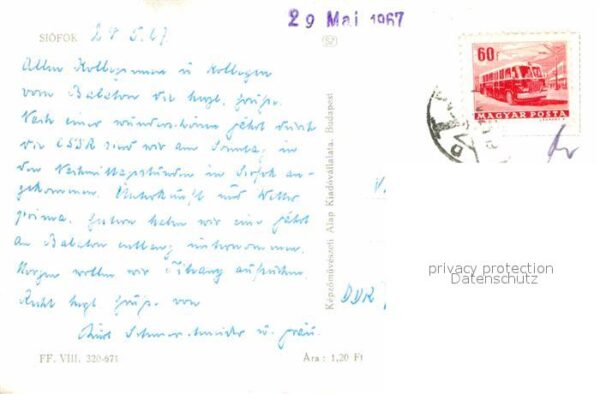 29 Mai 1967
SIÓFOK
Allen Kolleginnen u Kollegen
vom Balaton die hzgl. Grüße.
Nach einer wunderschönen Fahrt durch
die ČSSR sind wir am Sonntag in
den Nachmittagsstunden in Siofok an-
gekommen. Unterkunft und Wetter
prima. Gestern haben wir eine Fahrt
am Balaton entlang unternommen.
Morgen wollen wir Tihany aufsuchen.
Recht hzgl. Grüße von
Kurt u. Frau.
FF. VIII. 320-671
Ára : 1,20 Ft
Képzőművészeti Alap Kiadóvállalata, Budapest
DDR
60f
MAGYAR POSTA
privacy protection
Datenschutz